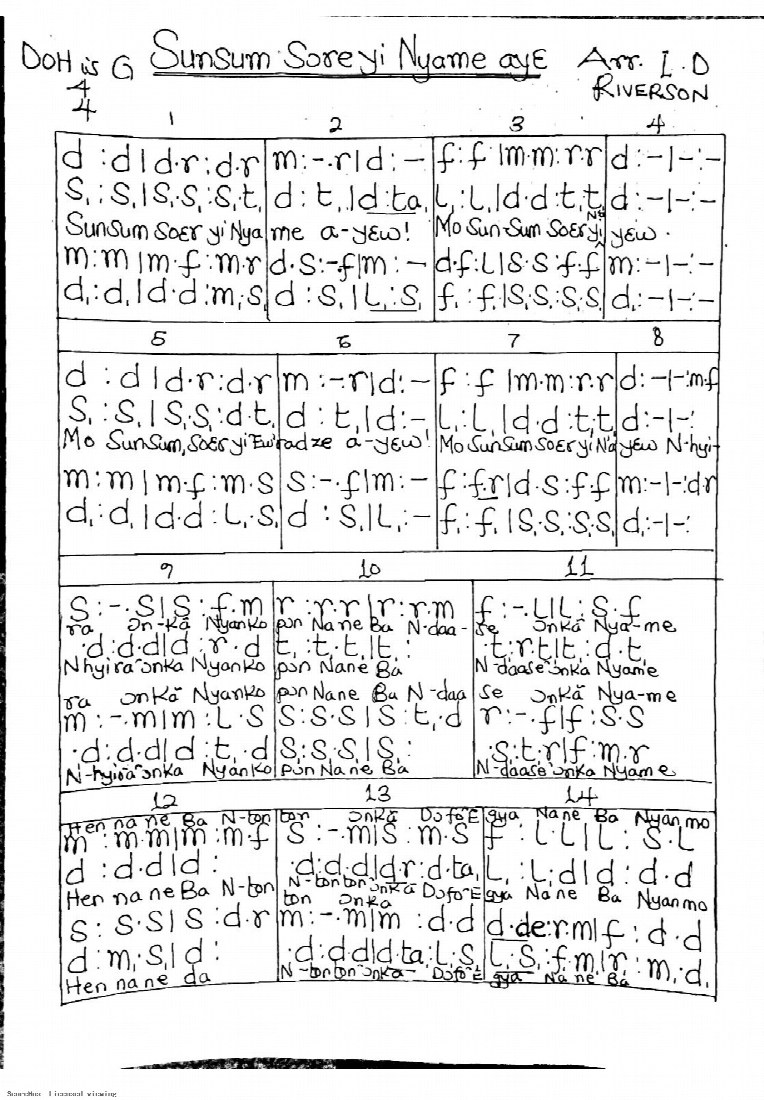 DOH is G Sunsum Sore yi Nyame ayɛ Arr. I.D
4
4 RIVERSON
1 2 3 4
d :d | d.r:d.r m:-.r | d:- f:f | m.m:r.r d:-|-:-
S₁:S₁ | S₁.S₁:S₁.t₁ d:t₁ | d:ta₁ L₁:L₁ | d.d:t₁.t₁ d:-|-:-
Sunsum Soɛr yi Nya me a-yɛw! Mo Sun-Sum Soɛr yi Na yɛw.
m:m | m.f:m.r d.S:-.f | m:- d.f:L | S.S:f.f m:-|-:-
d₁:d₁ | d.d:m₁.S₁ d:S₁ | L₁:S₁ f₁:f₁ | S₁.S₁:S₁.S₁ d₁:-|-:-
5 6 7 8
d :d | d.r:d.r m:-.r | d:- f:f | m.m:r.r d:-|-:m.f
S₁:S₁ | S₁.S₁:d.t₁ d:t₁ | d:- L₁:L₁ | d.d:t₁.t₁ d:-|-:
Mo Sunsum, Soɛr yi Ewradze a-yɛw! Mo Sunsum Soɛr yi N'a yɛw N-hyi-
m:m | m.f:m.S S:-.f | m:- f:f.r | d.S:f.f m:-|-:d.r
d₁:d₁ | d.d:L₁.S₁ d:S₁ | L₁:- f₁:f₁ | S₁.S₁:S₁.S₁ d₁:-|-:
9 10 11
S:-.S | S:f.m r:r.r | r:r.m f:-.L | L:S.f
ra ɔn-kã Nyanko pɔn Na ne Ba N-daa- se ɔnkã Nya-me
.d:d.d | d:r.d t₁:t₁.t₁ | t₁: .t₁:r.t₁ | t₁:d.t₁
N hyira ɔnka Nyanko pɔn Na ne Ba N-daase ɔnka Nyame
ra ɔnkã Nyanko pɔn Na ne Ba N-daa se ɔnkã Nya-me
m:-.m | m:L.S S:S.S | S:t₁.d r:-.f | f:S.S
.d:d.d | d:t₁.d S₁:S₁.S₁ | S₁: .S₁:t₁.r | f:m.r
N-hyira ɔnka Nyanko pɔn Na ne Ba N-daase ɔnka Nyame
12 13 14
Hen na ne Ba N-ton ton ɔnkã Dɔfo E gya Na ne Ba Nyan mo
m:m.m | m:m.f S:-.m | S:m.S f:L.L | L:S.L
d:d.d | d: .d:d.d | d.r:d.ta₁ L₁:L₁.d | d:d.d
Hen na ne Ba N-ton N-tonton ɔnkã Dɔfo E gya Na ne Ba Nyanmo
ton ɔnka
S:S.S | S:d.r m:-.m | m:d.d d.de:r.m | f:d.d
d:m₁.S₁ | d: .d:d.d | d.ta₁:L₁.S₁ L₁.S₁:f₁.m₁ | r₁:m₁.d₁
Hen na ne da N-tonton ɔnka- Dɔfo E gya Na ne Ba